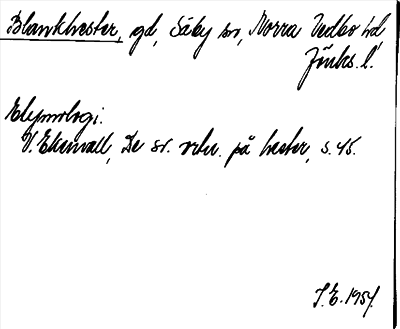 Blankhester, gd, Säby sn, Norra Vedbo hd
Jönk. l.
Etymologi.
V. Ekenvall, De sv. ortn. på hester, s. 45.
I.E. 1957.